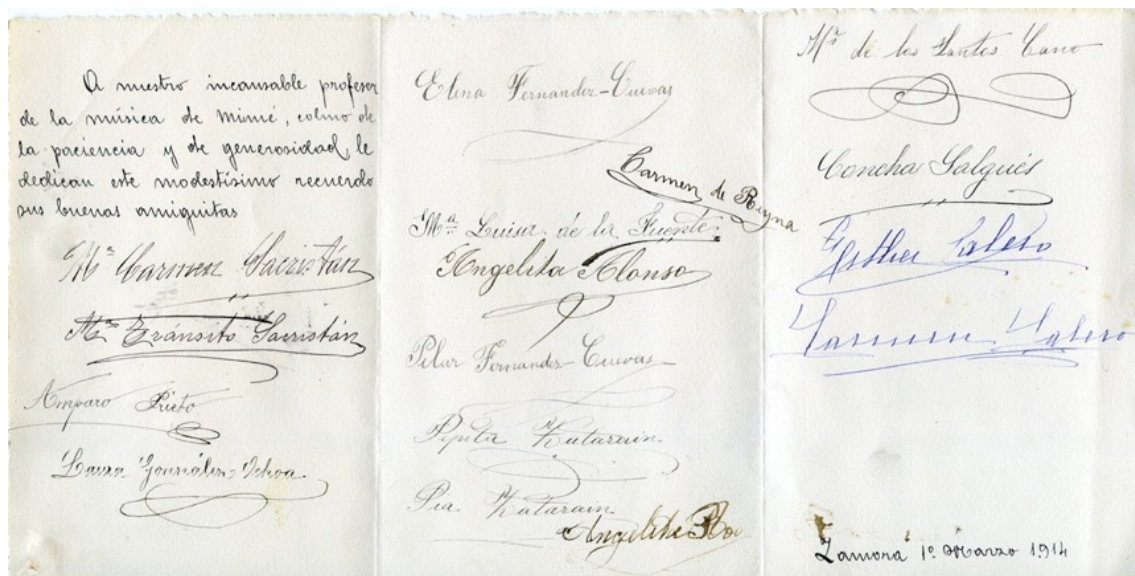 A nuestro incansable profesor
de la música de Mimé, colmo de
la paciencia y de generosidad, le
dedican este modestísimo recuerdo
sus buenas amiguitas
Mª Carmen Sacristán
Mª Tránsito Sacristán
Amparo Prieto
Laura González Ochoa
Elena Fernandez-Cuevas
Carmen de Reyna
Mª Luisa de la Fuente
Angelita Alonso
Pilar Fernandez-Cuevas
Pepita Katarain
Pia Katarain
Angelita
Mª de los Santos Cano
Concha Salgués
Esther Calero
Carmen Calero
Zamora 1º Marzo 1914